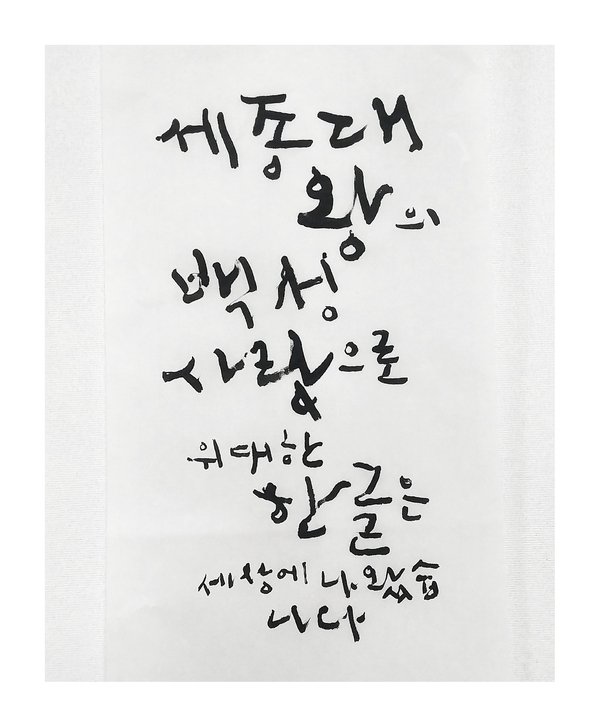 세종대
왕의
백성
사랑으로
위대한
한글은
세상에 나왔습
니다